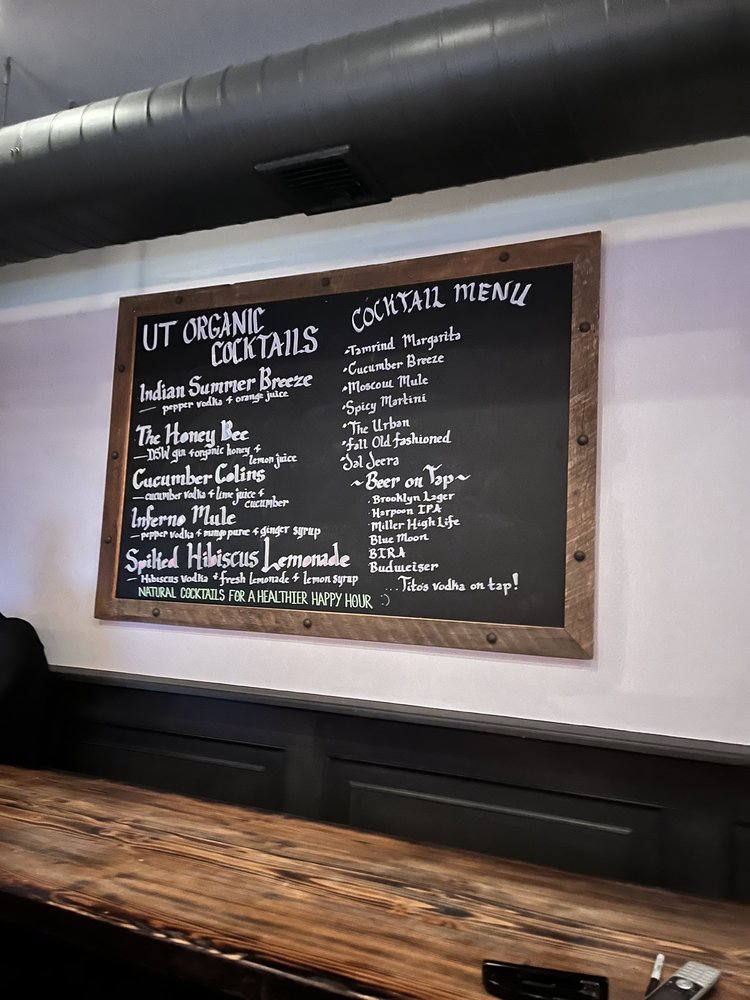 UT ORGANIC
COCKTAILS
Indian Summer Breeze
— pepper vodka + orange juice
The Honey Bee
— DSW gin + organic honey +
lemon juice
Cucumber Colins
— cucumber vodka + lime juice +
cucumber
Inferno Mule
— pepper vodka + mango puree + ginger syrup
Spiked Hibiscus Lemonade
— Hibiscus vodka + fresh lemonade + lemon syrup
NATURAL COCKTAILS FOR A HEALTHIER HAPPY HOUR :)
COCKTAIL MENU
•Tamrind Margarita
•Cucumber Breeze
•Moscow Mule
•Spicy Martini
•The Urban
•Fall Old fashioned
•Jal Jeera
~Beer on Tap~
•Brooklyn Lager
•Harpoon IPA
Miller High Life
Blue Moon
BIRA
Budweiser
...Tito's vodka on tap!